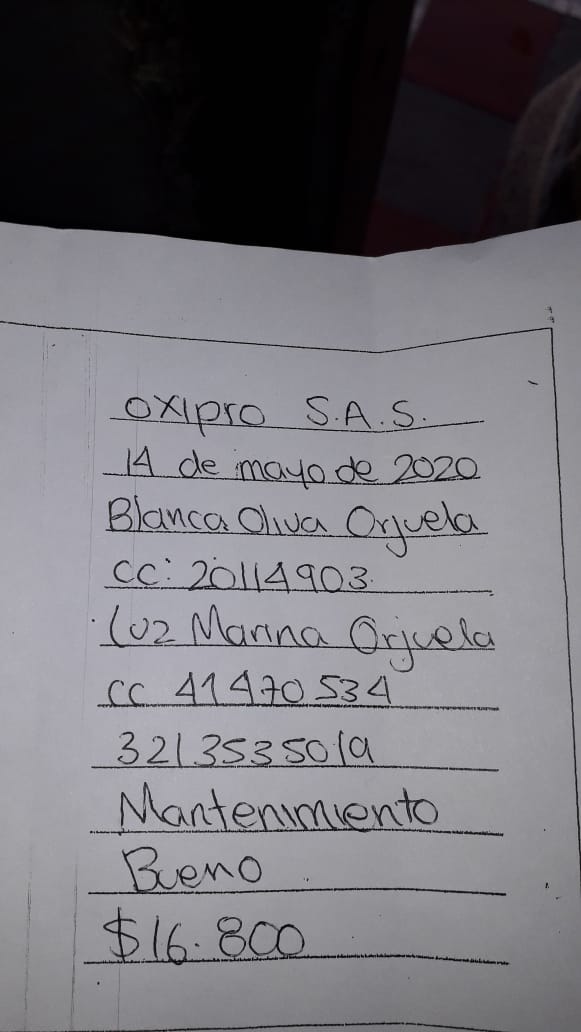 OXIPRO S.A.S.
14 de mayo de 2020
Blanca Oliva Orjuela
CC: 20114903
Luz Marina Orjuela
CC 41470534
3213535019
Mantenimiento
Bueno
$16.800